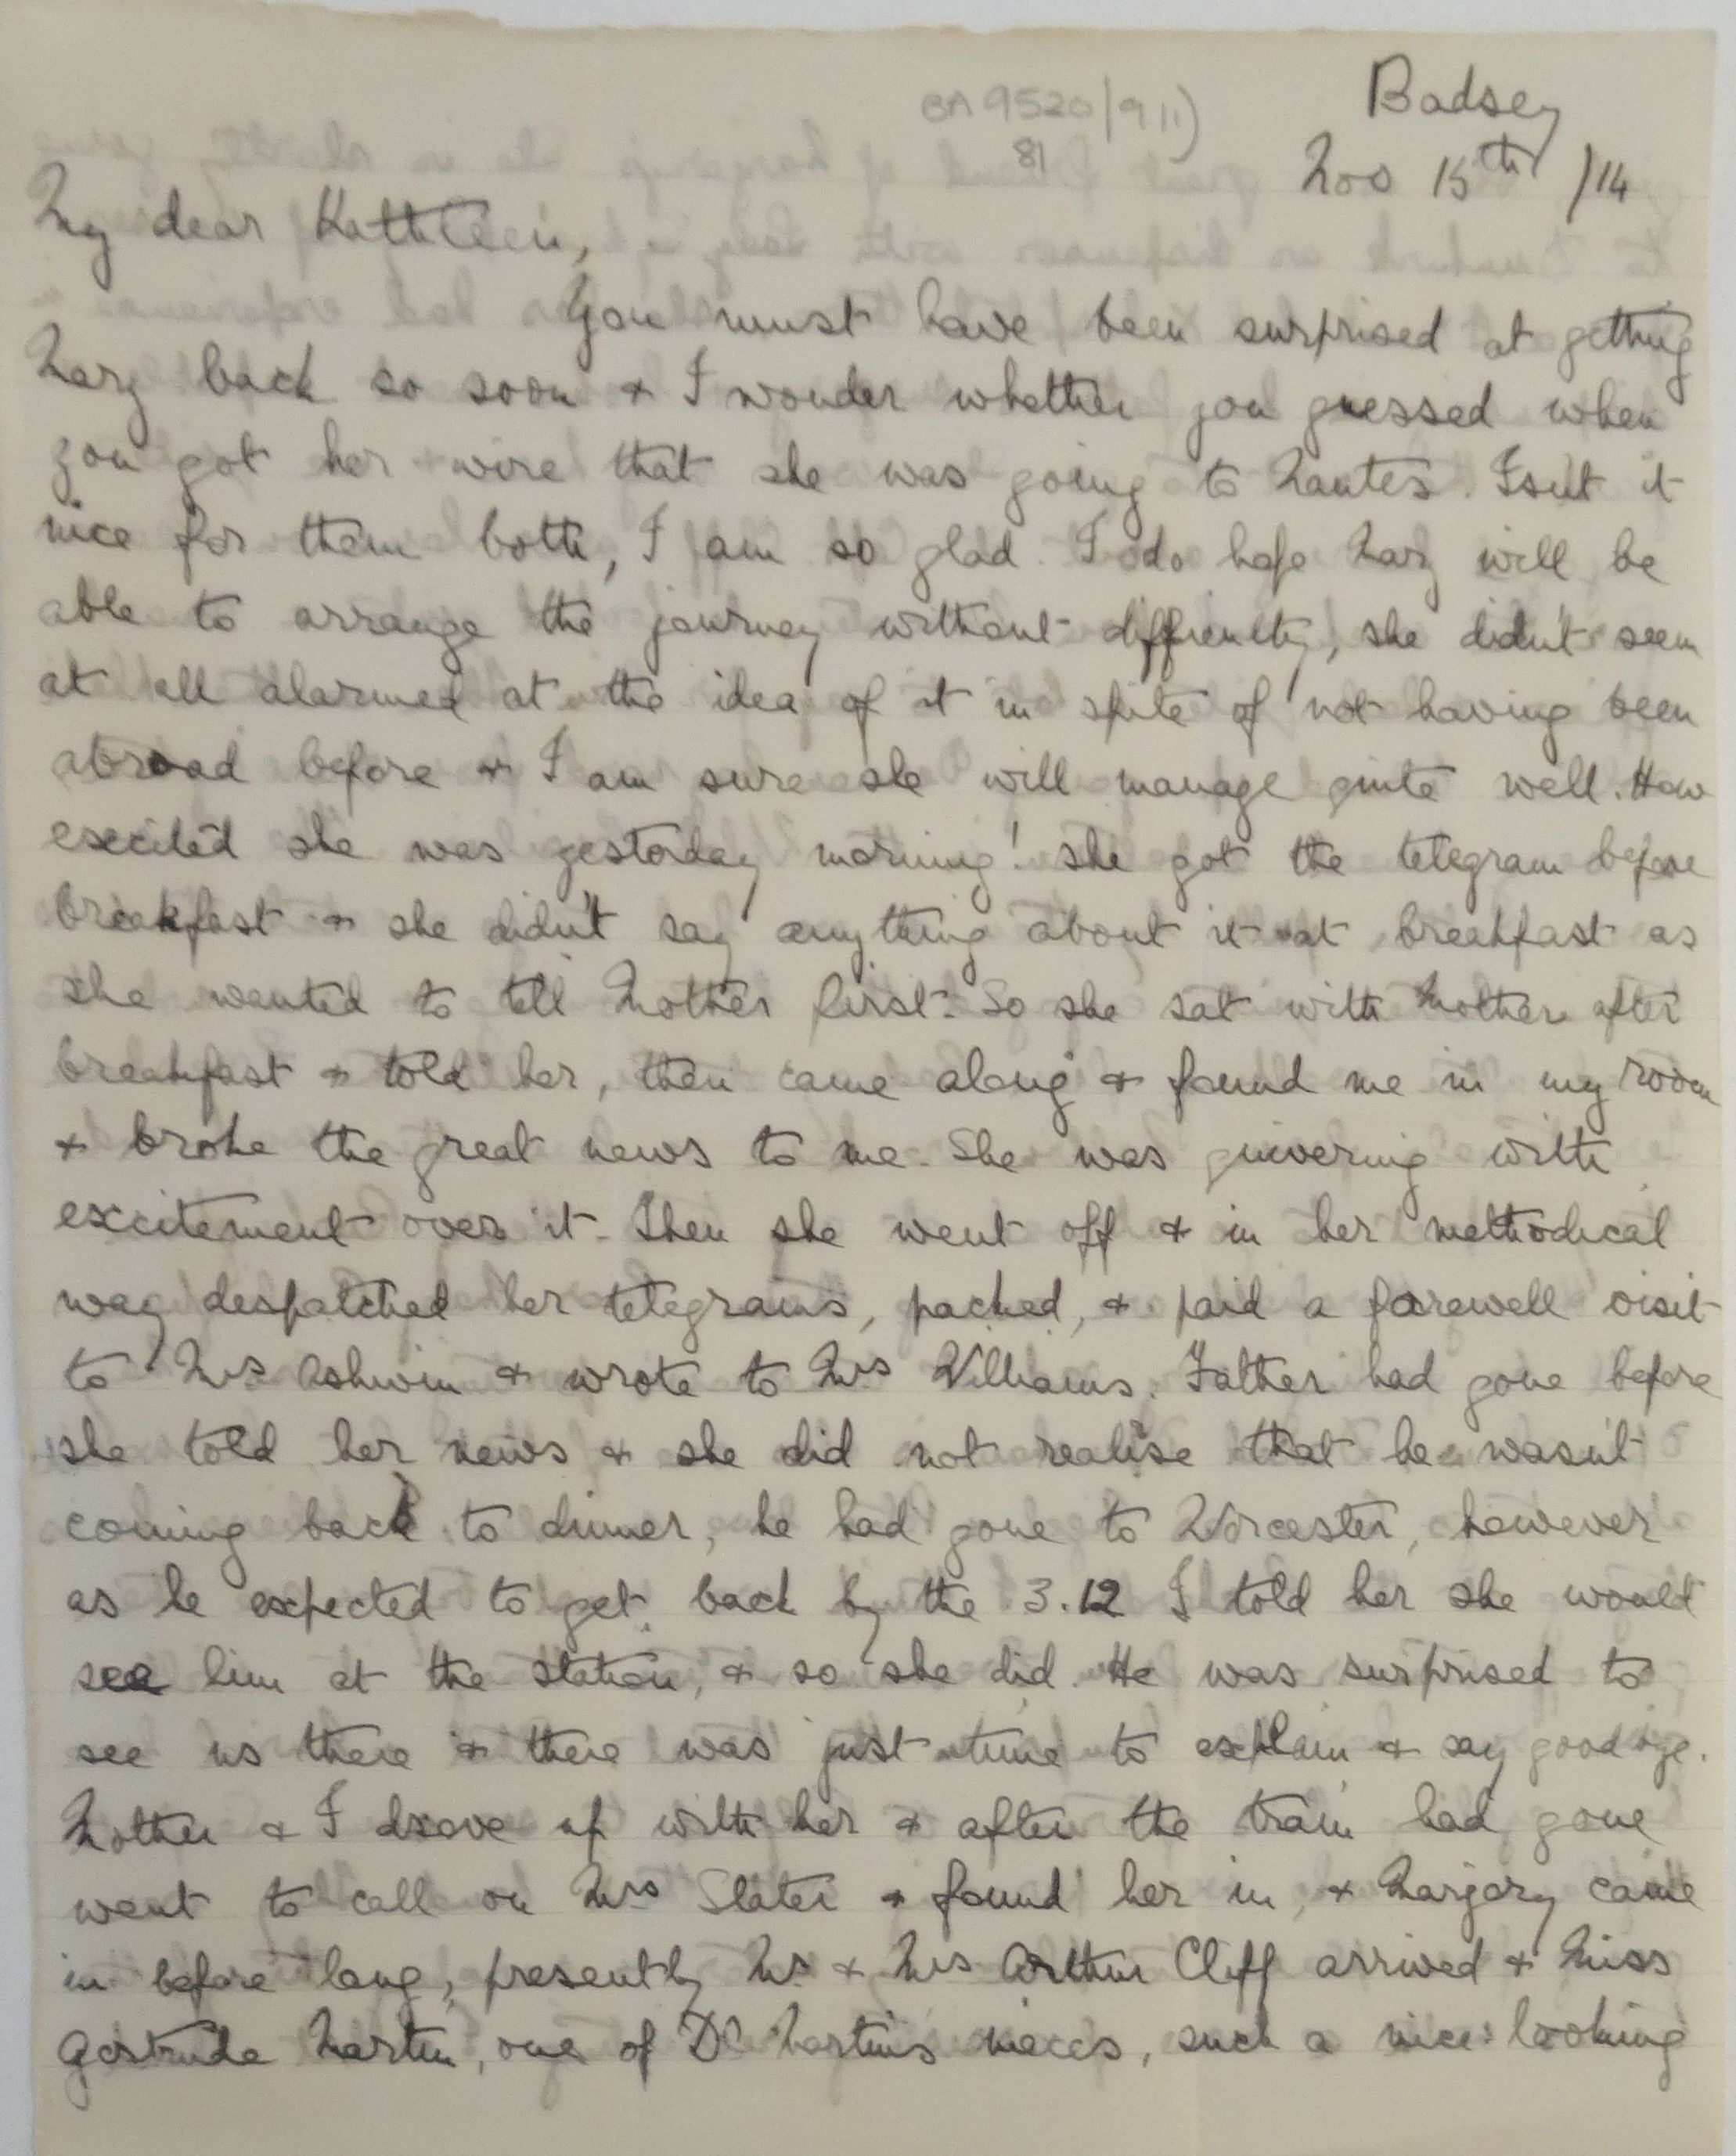 BA 9520/9 11)
81
Badsey
Nov 15th /14
My dear Kathleen,
You must have been surprised at getting
Mary back so soon & I wonder whether you guessed when
you got her wire that she was going to Nantes. Isn't it
nice for them both, I am so glad. I do hope Mary will be
able to arrange the journey without difficulty, she didn't seem
at all alarmed at the idea of it in spite of not having been
abroad before & I am sure she will manage quite well. How
excited she was yesterday morning! She got the telegram before
breakfast & she didn't say anything about it at breakfast as
she wanted to tell Mother first. So she sat with Mother after
breakfast & told her, then came along & found me in my room
& broke the great news to me. She was quivering with
excitement over it. Then she went off & in her methodical
way despatched her telegrams, packed, & paid a farewell visit
to Mrs Ashwin & wrote to Mrs Williams. Father had gone before
she told her news & she did not realise that he wasn't
coming back to dinner, he had gone to Worcester, however
as he expected to get back by the 3.12 I told her she would
see him at the station, & so she did. He was surprised to
see us there & there was just time to explain & say goodbye.
Mother & I drove up with her & after the train had gone
went to call on Mrs Slater & found her in, & Marjory came
in before long, presently Mr & Mrs Arthur Cliff arrived & Miss
Gertrude Martin, one of Dr Martin's nieces, such a nice looking